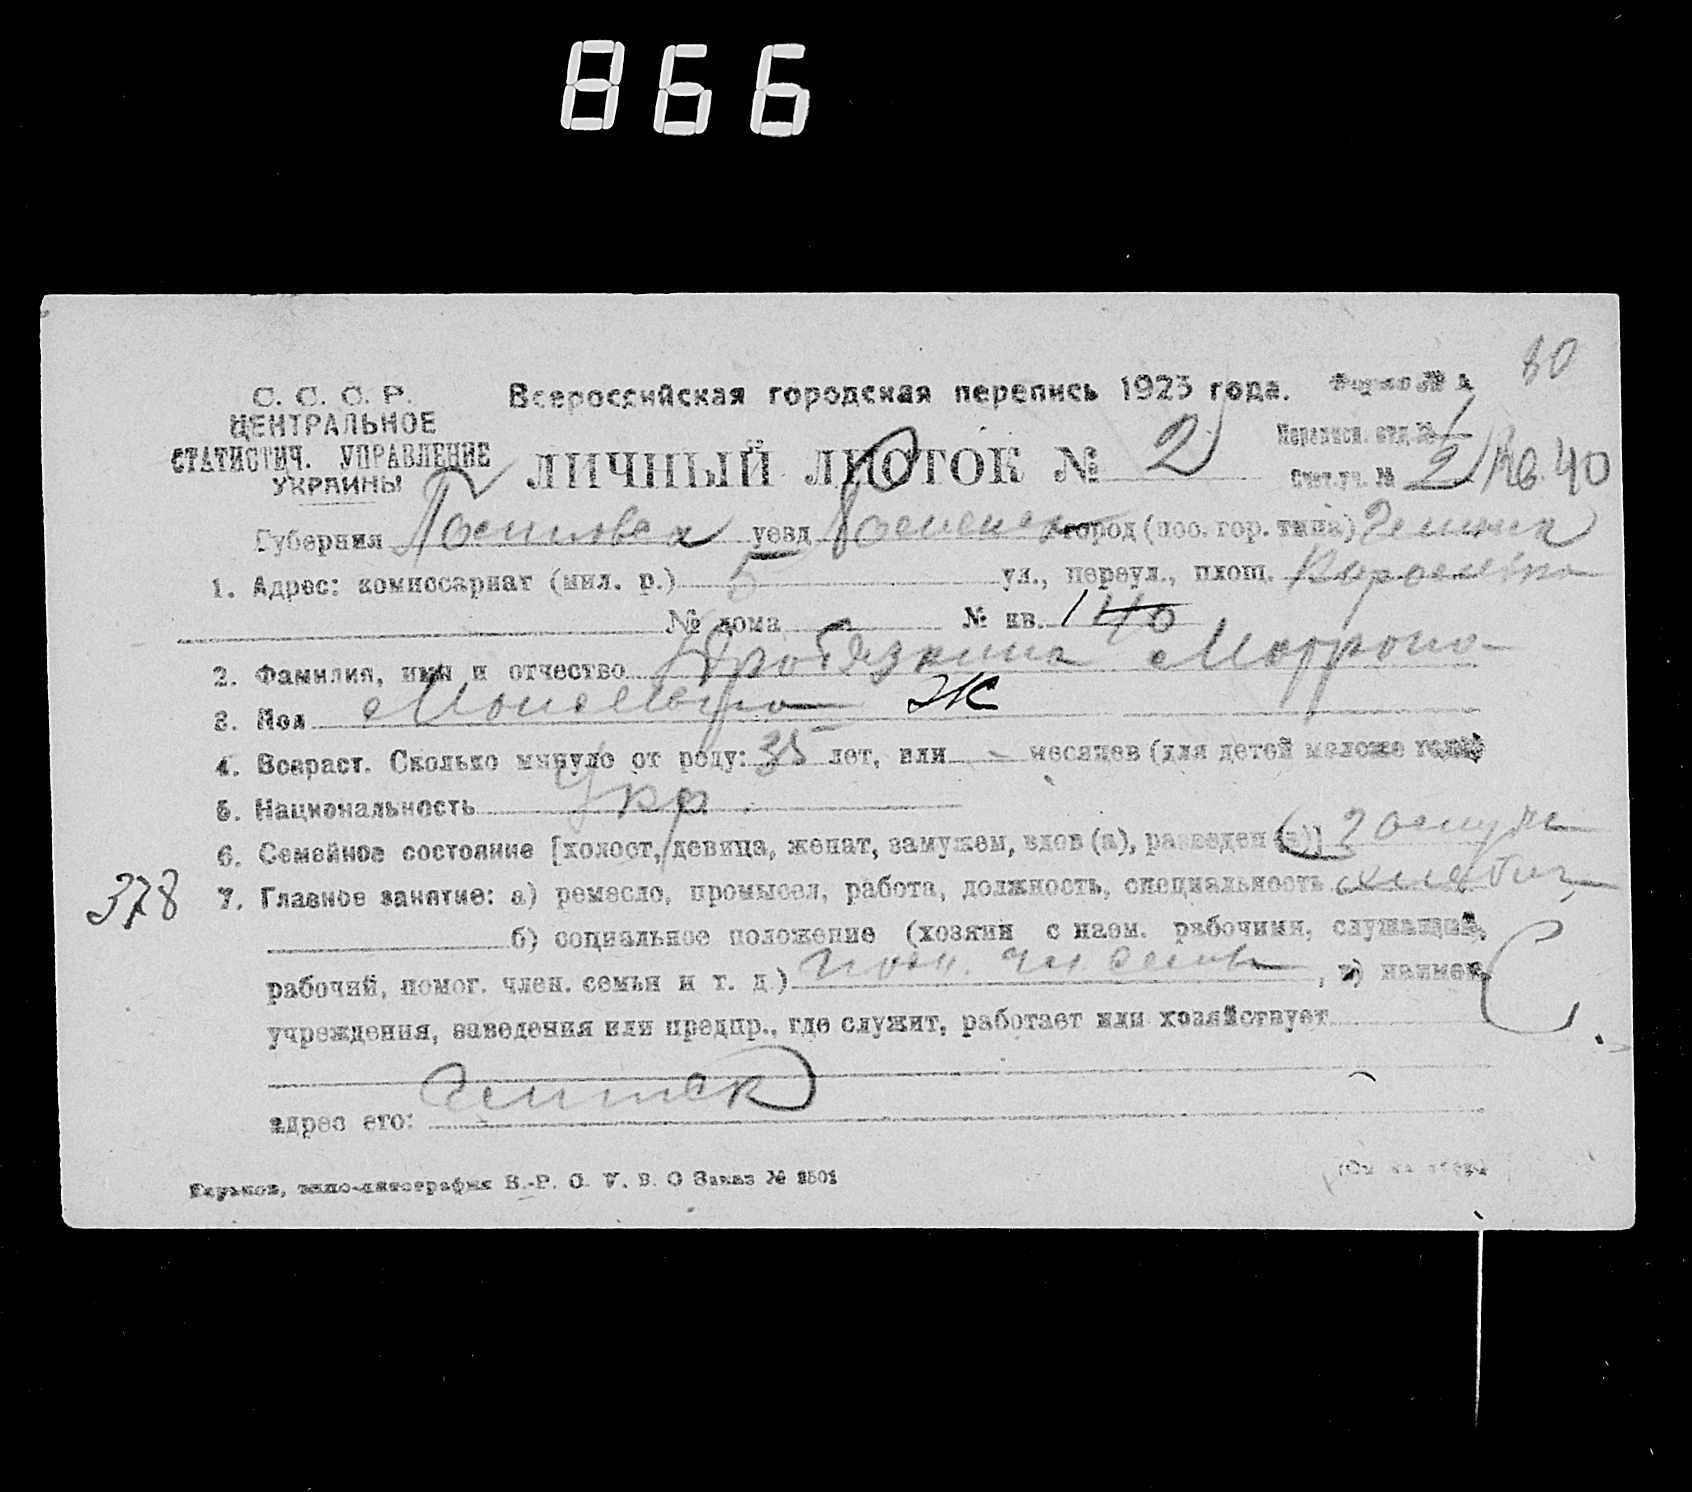 866
80
С. С. С. Р.
ЦЕНТРАЛЬНОЕ
СТАТИСТИЧ. УПРАВЛЕНИЕ
УКРАИНЫ
Всероссийская городская перепись 1923 года.
Форма № А
ЛИЧНЫЙ ЛИСТОК № 2
Переписн. отд. № 1
Счет. уч. № 2 Кв. 40
Губерния Полтавск уезд город (пос. гор. типа)
1. Адрес: комиссариат (мил. р.) 5 ул., переул., площ.
№ дома № кв. 1 40
2. Фамилия, имя и отчество
3. Пол Ж
4. Возраст. Сколько минуло от роду: 35 лет, или - месяцев (для детей моложе года)
5. Национальность Укр.
6. Семейное состояние [холост, девица, женат, замужем, вдов (а), разведен (а)] Замуж
378
7. Главное занятие: а) ремесло, промысел, работа, должность, специальность
б) социальное положение (хозяин с наем. рабочими, служащий,
рабочий, помог. член. семьи и т. д.) пом. чл. семьи, в) наимен.
учреждения, заведения или предпр., где служит, работает или хозяйствует
адрес его:
Харьков, типо-литография В.-Р. С. У. В. О Заказ № 3501